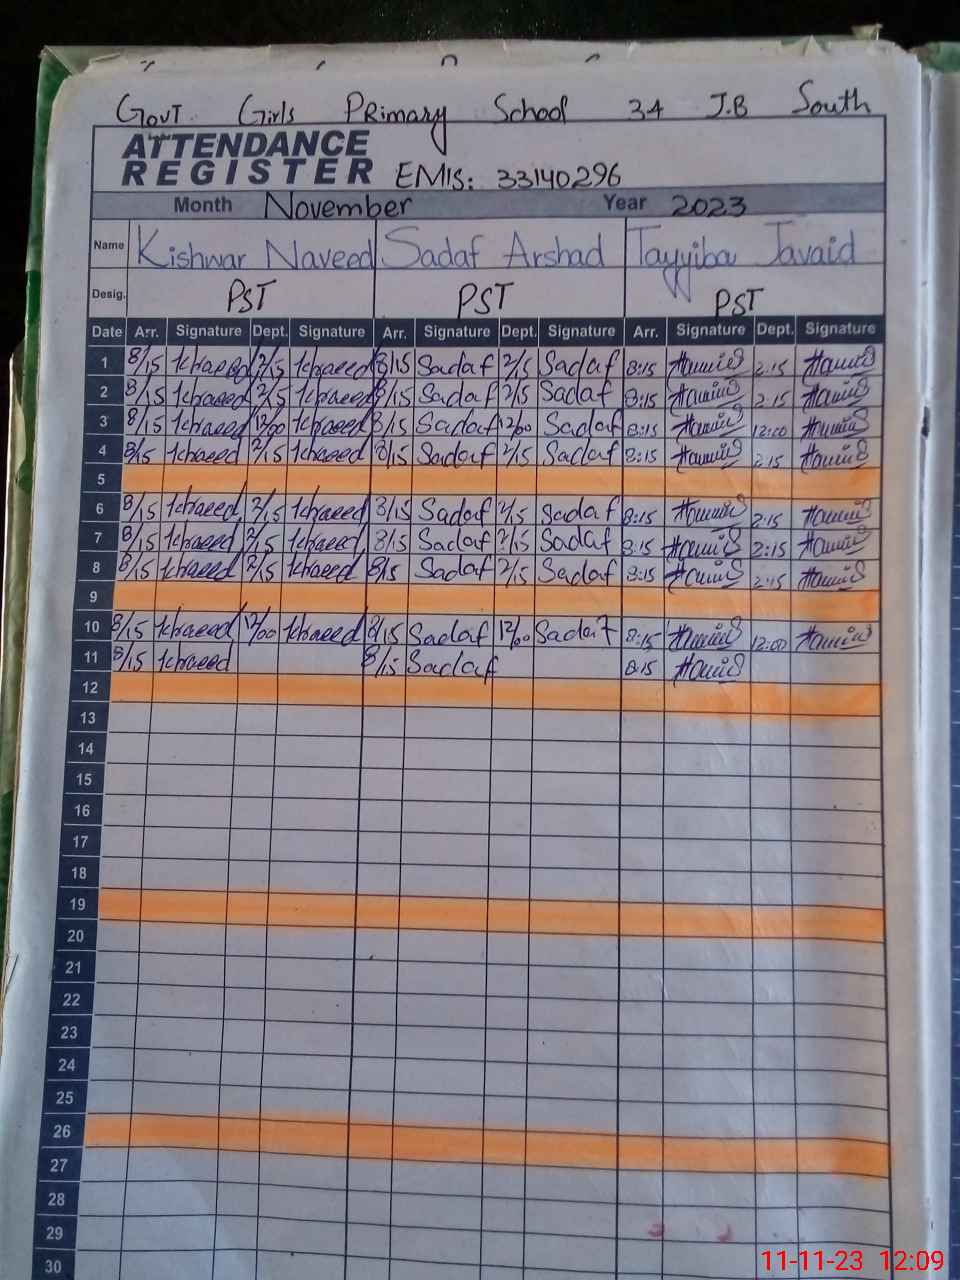 Govt Girls Primary School 34 J.B South
ATTENDANCE
REGISTER EMIS: 33140296
Month November Year 2023
Name Kishwar Naveed Sadaf Arshad Tayyiba Javaid
Desig. PST PST PST
Date Arr. Signature Dept. Signature Arr. Signature Dept. Signature Arr. Signature Dept. Signature
1 8/15 2/15 8/15 Sadaf 2/15 Sadaf 8:15 2:15
2 8/15 2/15 8/15 Sadaf 2/15 Sadaf 8:15 2:15
3 8/15 12/00 8/15 Sadaf 12/00 Sadaf 8:15 12:00
4 8/15 2/15 8/15 Sadaf 2/15 Sadaf 8:15 2:15
5
6 8/15 2/15 8/15 Sadaf 2/15 Sadaf 8:15 2:15
7 8/15 2/15 8/15 Sadaf 2/15 Sadaf 8:15 2:15
8 8/15 2/15 8/15 Sadaf 2/15 Sadaf 8:15 2:15
9
10 8/15 12/00 8/15 Sadaf 12/00 Sadaf 8:15 12:00
11 8/15 8/15 Sadaf 8:15
12
13
14
15
16
17
18
19
20
21
22
23
24
25
26
27
28
29
30
11-11-23 12:09